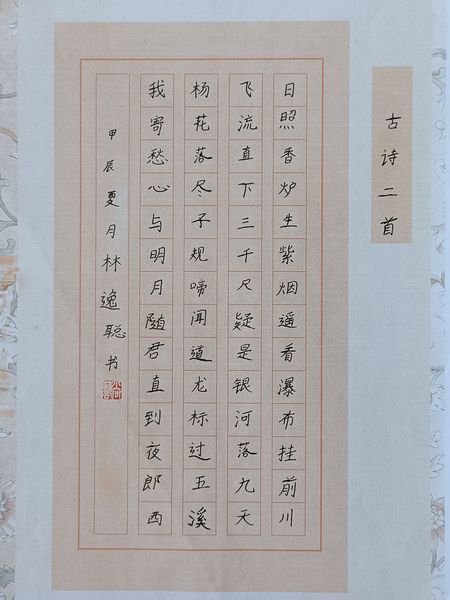 古诗二首
日照香炉生紫烟遥看瀑布挂前川
飞流直下三千尺疑是银河落九天
杨花落尽子规啼闻道龙标过五溪
我寄愁心与明月随君直到夜郎西
甲辰夏月林逸聪书